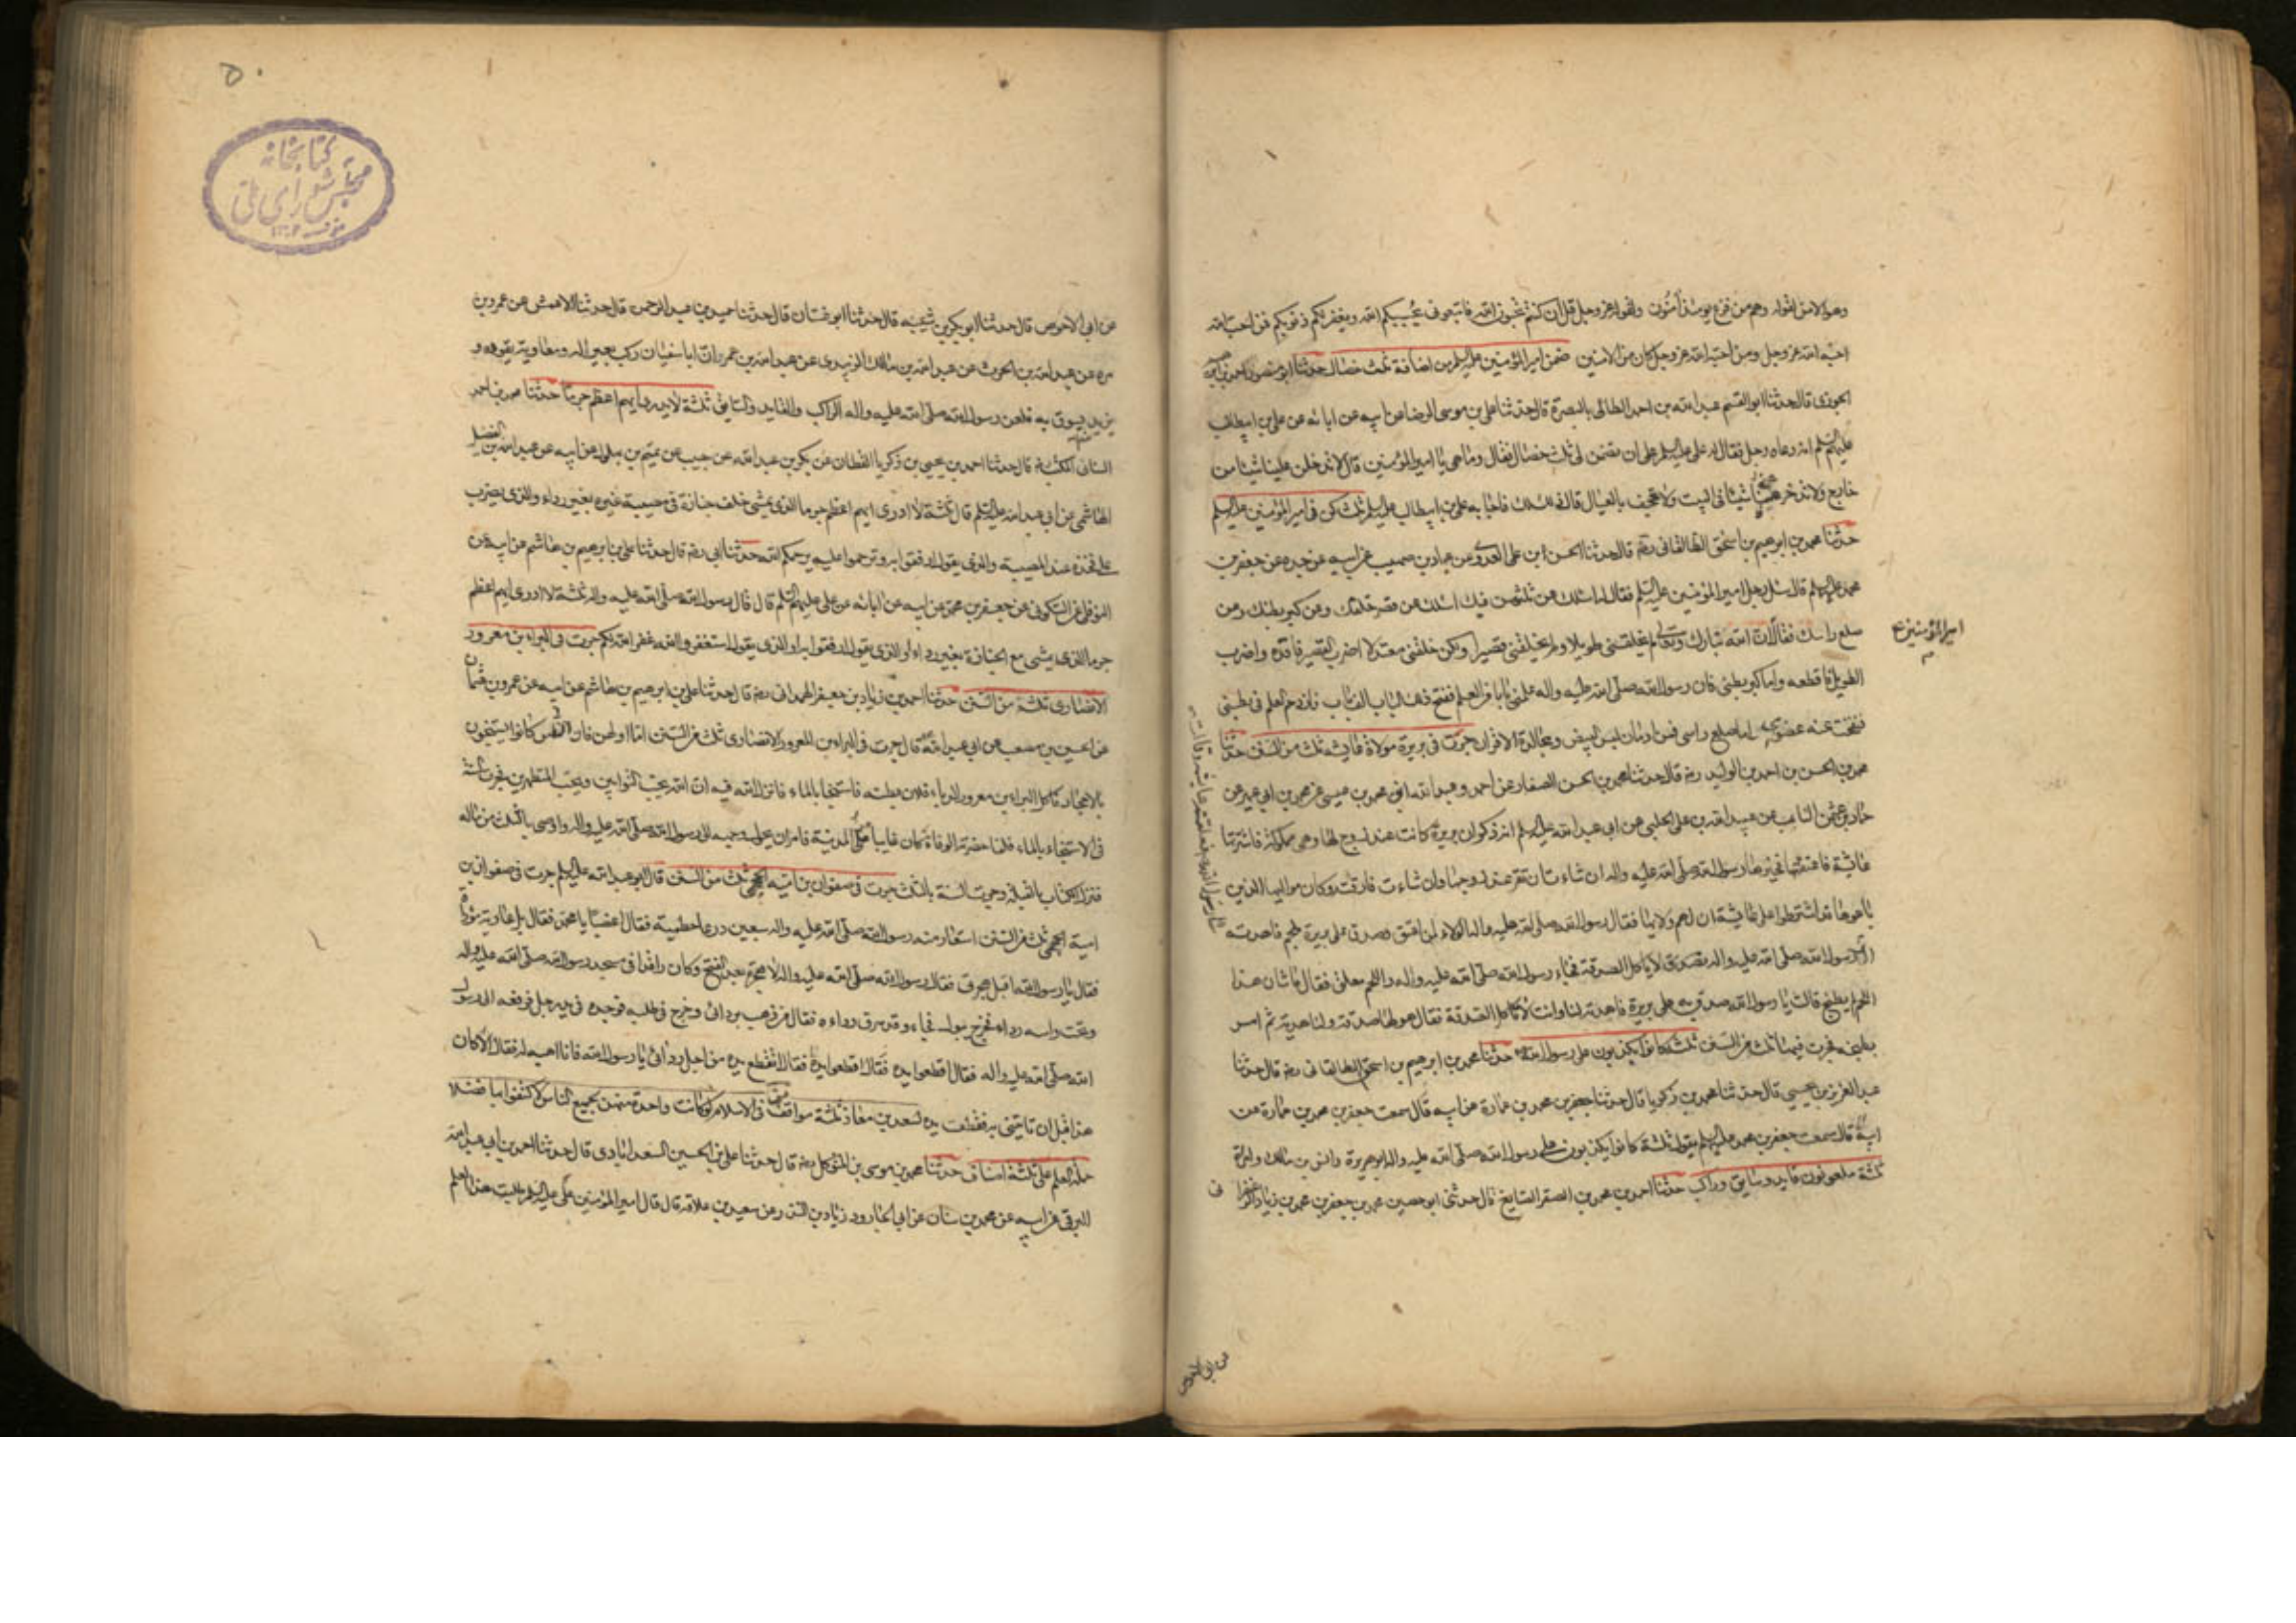 وهو الامن لقوله وهم من فزع يومئذ آمنون ولقوله عز وجل قل ان كنتم تحبون الله فاتبعوني يحببكم الله ويغفر لكم ذنوبكم فمن احب الله
احبه الله عز وجل ومن احبه الله عز وجل كان من الامنين ضمن امير المؤمنين عليه السلم لمن اضافه ثلث خصال حدثنا ابو منصور احمد بن
الجوزى قال حدثنا ابو القسم عبد الله بن احمد الطائى بالبصرة قال حدثنا على بن موسى الرضا عن ابيه عن ابائه عن على بن ابيطالب
عليهم السلم انه دعاه رجل فقال له على عليه السلم على ان تضمن لى ثلث خصال فقال وما هى يا امير المؤمنين قال لا تدخلن علينا شيئا من
خارج ولا تدخر عنا شيئا فى البيت ولا تجحف بالعيال قال ذلك لك فاجابه على بن ابيطالب عليه السلم ثلث كن فى امير المؤمنين عليه السلم
حدثنا محمد بن ابرهيم بن اسحق الطالقانى رضه قال حدثنا الحسن ابن على العدوى عن عباد بن صهيب عن ابيه عن جده عن جعفر بن
محمد عليه السلم قال سئل رجل امير المؤمنين عليه السلم فقال له اسئلك عن ثلث هن فيك اسئلك عن قصر خلقك وعن كبر بطنك وعن
صلع راسك فقال ان الله تبارك وتعالى لم يخلقنى طويلا ولم يخلقنى قصيرا ولكن خلقنى معتدلا اضرب القصير فاقده واضرب
امير المؤمنين ع
الطويل فاقطه واما كبر بطنى فان رسول الله صلى الله عليه واله علمنى بابا من العلم ففتح ذلك الباب الف باب فازدحم العلم فى بطنى
فنفخت عنه عضوى واما صلع راسى فمن ادمان لبس البيض ومجالدة الاقران جرت فى بريرة مولاة عايشه ثلث من السنن حدثنا
محمد بن الحسن بن احمد بن الوليد رضه قال حدثنا محمد بن الحسن الصفار عن احمد وعبد الله ابنى محمد بن عيسى عن محمد بن ابى عمير عن
حماد بن عثمن الناب عن عبيد الله بن على الحلبى عن ابى عبد الله عليه السلم انه ذكر ان بريرة كانت عند زوج لها وهى مملوكة فاشترتها
عايشة فاعتقتها فخيرها رسول الله صلى الله عليه واله ان شاءت ان تقر عند زوجها وان شاءت فارقته وكان مواليها الذين
باعوها قد اشترطوا على عايشة ان لهم ولاءها فقال رسول الله صلى الله عليه واله الولاء لمن اعتق وصدق على بريرة بلحم فاهدته
رسول الله صلى الله عليه واله لا ياكل الصدقة فجاء رسول الله صلى الله عليه واله واللحم معلق فقال ما شان هذا
اللحم لم يطبخ قالت يا رسول الله صدق به على بريرة فاهدته لنا وانت لا تاكل الصدقة فقال هو لها صدقة ولنا هدية ثم امر
بطبخه فجرت فيها ثلث من السنن ثلثة كانوا يكذبون على رسول الله حدثنا محمد بن ابرهيم بن اسحق الطالقانى رضه قال حدثنا
عبد العزيز بن يحيى قال حدثنا محمد بن زكريا قال حدثنا جعفر بن محمد بن عمارة عن ابيه قال سمعت جعفر بن محمد بن عمارة عن
ابيه قال سمعت جعفر بن محمد عليه السلم يقول ثلثة كانوا يكذبون على رسول الله صلى الله عليه واله ابو هريرة وانس بن مالك وامراة
ثلثة ملعونون قايد وسايق وراكب حدثنا احمد بن محمد بن الصقر الصايغ قال حدثنى ابو حصين محمد بن جعفر بن محمد بن زياد
عن ابى الاحوص
عن ابى الاحوص قال حدثنا ابو بكر بن شيبه قال حدثنا ابو غسان قال حدثنا حميد بن عبد الرحمن قال حدثنا الاعمش عن عمرو بن
مره عن عبد الله بن الحرث عن عبد الله بن مالك الزبيدى عن عبد الله بن عمر ان ابا سفيان ركب بعير له ومعاوية يقوده و
يزيد يسوق به فلعن رسول الله صلى الله عليه واله الراكب والقايد والسايق ثلثة لا يدرى ايهم اعظم جرما حدثنا محمد بن احمد
السنانى المكتب قال حدثنا احمد بن يحيى بن زكريا القطان عن بكر بن عبد الله عن حبيب عن تميم بن بهلول عن ابيه عن عبد الله بن الفضل
الهاشمى عن ابى عبد الله عليه السلم قال ثلثة لا ادرى ايهم اعظم جرما الذى يمشى خلف جنازة فى مصيبة غيره بغير رداء والذى يضرب
على فخذه عند المصيبة والذى يقول ارفقوا به وترحموا عليه يرحمكم الله حدثنا ابى رضه قال حدثنا على بن ابرهيم بن هاشم عن ابيه عن
النوفلى عن السكونى عن جعفر بن محمد عن ابيه عن ابائه عن على عليهم السلم قال قال رسول الله صلى الله عليه واله ثلثة لا ادرى ايهم اعظم
جرما الذى يمشى مع الجنازة بغير رداء او الذى يقول ارفقوا به او الذى يقول استغفروا له غفر الله لكم جرت فى البراء بن معرور
الانصارى ثلثة من السنن حدثنا احمد بن زياد بن جعفر الهمدانى رضه قال حدثنا على بن ابرهيم بن هاشم عن ابيه عن عمرو بن عثمان
عن الحسين بن مصعب عن ابى عبد الله قال جرت فى البراء بن المعرور الانصارى ثلث من السنن اما اولهن فان الناس كانوا يستنجون
بالاحجار فاكل البراء بن معرور الدباء فلان بطنه فاستنجا بالماء فانزل الله فيه ان الله يحب التوابين ويحب المتطهرين فجرت السنة
فى الاستنجاء بالماء فلما حضرته الوفاة كان غايبا عن المدينة فامر ان يحول وجهه الى رسول الله صلى الله عليه واله واوصى بالثلث من ماله
فنزل الكتاب بالقبلة وجرت السنة بالثلث جرت فى صفوان بن امية الجمحى ثلث من السنن قال ابو عبد الله عليه السلم جرت فى صفوان بن
امية الجمحى ثلث من السنن استعار منه رسول الله صلى الله عليه واله سبعين درعا حطمية فقال اغصبا يا محمد فقال بل عارية مؤداة
فقال يا رسول الله اقبل هجرتى فقال رسول الله صلى الله عليه واله لا هجرة بعد الفتح وكان راقدا فى مسجد رسول الله صلى الله عليه واله
وتحت راسه رداه فخرج يبول فجاء وقد سرق رداءه فقال من ذهب بردائى وخرج فى طلبه فوجده فى يد رجل فرفعه الى رسول
الله صلى الله عليه واله فقال اقطعوا يده فقال اتقطع يده من اجل ردائى يا رسول الله فانا اهبه له فقال الا كان
هذا قبل ان تاتينى به فقطعت يده لسعد بن معاذ ثلثة مواقف فى الاسلام لو كانت واحدة منهن لجميع الناس لاكتفوا بها فضلا
حملة العلم على ثلثة اصناف حدثنا محمد بن موسى بن المتوكل رضه قال حدثنا على بن الحسين السعدابادى قال حدثنا احمد بن ابى عبد الله
البرقى عن ابيه عن محمد بن سنان عن ابى الجارود زياد بن المنذر عن سعيد بن علاقه قال قال امير المؤمنين على عليه السلم طلبت هذا العلم
٥٠
كتابخانه
مجلس شوراى ملى